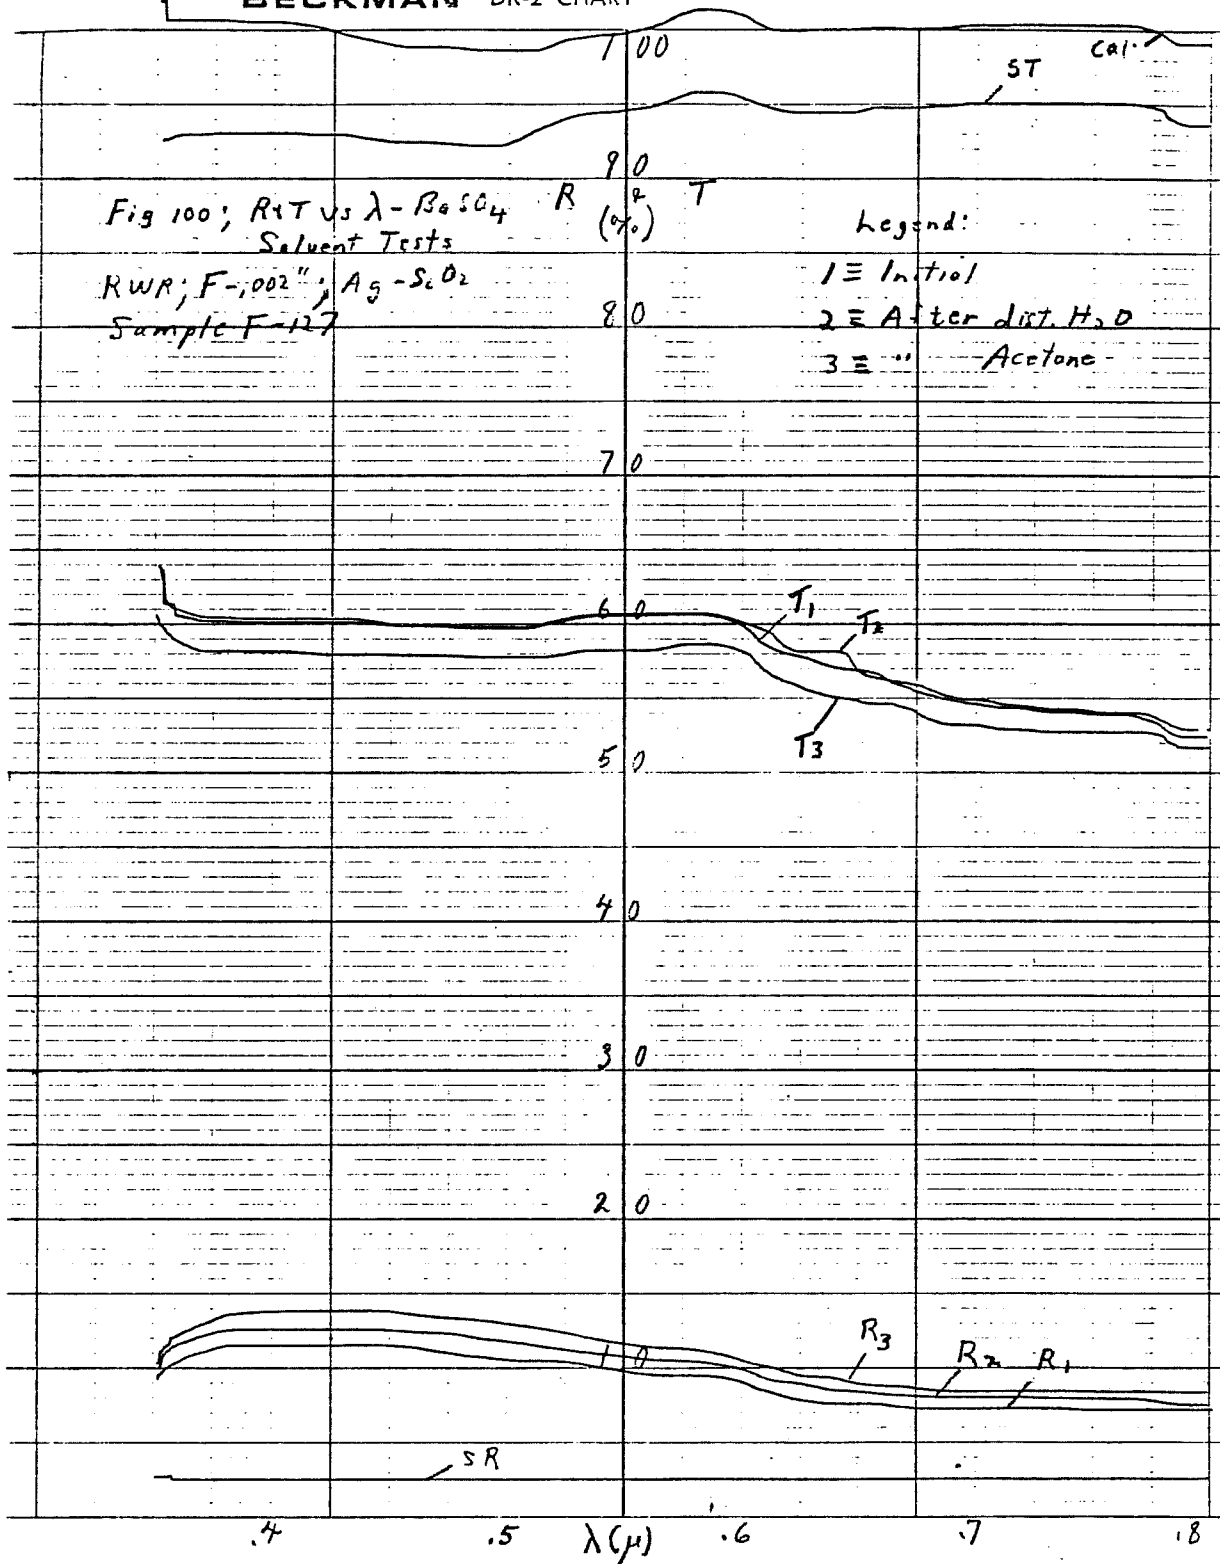 BECKMAN DK-2 CHART
100
Cal.
ST
90
R & T
(%)
Fig 100; R&T vs λ - BaSO4
Solvent Tests
RWR; F-.002"; Ag-SiO2
Sample F-127
Legend:
1 ≡ Initial
2 ≡ After dist. H2O
3 ≡ " Acetone
80
70
60
T1
T2
T3
50
40
30
20
10
R3
R2
R1
SR
.4 .5 λ(μ) .6 .7 .8